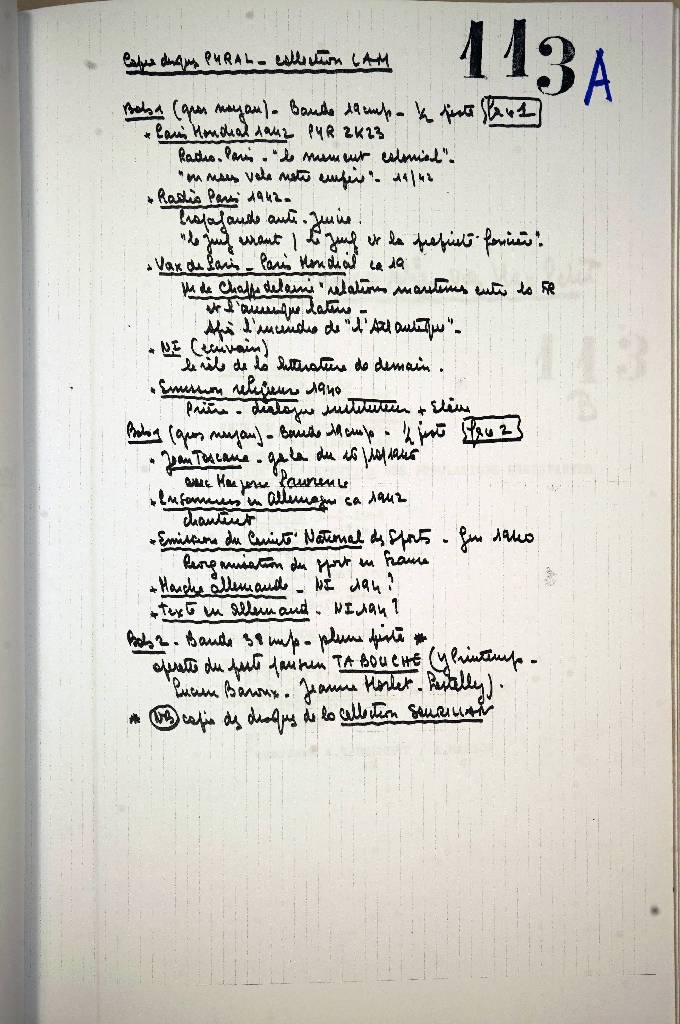 113 A
Copie disques PYRAL - collection LAM
Bob 1 (gros noyau) - Bande 19 cmp - 1/2 piste
* Paris Mondial 1942 PYR 2K23
Radio-Paris - "le moment colonial" -
"on nous vole notre empire" - 11/42
* Radio Paris 1942 -
Propagande anti-Juive.
"le Juif errant / le Juif et la propriété foncière".
* Voix de Paris - Paris Mondial ca 19
de Chappedelaine "relations maritimes entre la FR
et l'amérique latine -
Après l'incendie de "l'Atlantique" -
* NI (écrivain)
le rôle de la littérature de demain.
* Emission religieuse 1940
Prière - dialogue instituteur + Elève
Bob 1 (gros noyau) - Bande 19 cmp - 1/2 piste
* Jean Toscane - gala du 16/10/1945
avec Marjorie Lawrence
* Prisonniers en Allemagne ca 1942
chantent
* Emission du Comité National des Sports - 1940
Réorganisation du sport en France
* Marche allemande - NI 194?
* Texte en Allemand - NI 194?
Bob 2 - Bande 38 cmp - pleine piste *
opérette du poste parisien TA BOUCHE (Y Printemps -
Lucien Baroux - Jeanne
* NB copie des disques de la collection